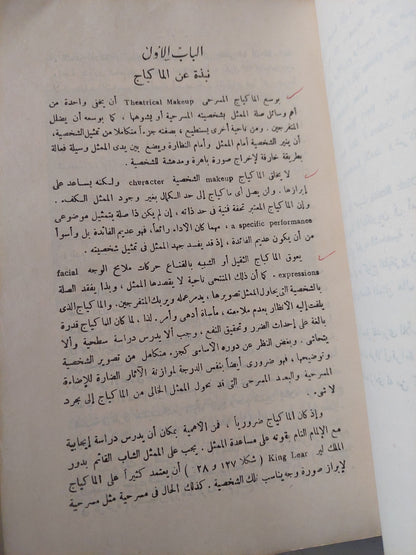 الباب الأول
نبذة عن الماكياج
بوسع الماكياج المسرحى Theatrical Makeup أن يخفى واحدة من
أهم وسائل صلة الممثل بشخصيته المسرحية أو يشوهها ، كما بوسعه أن يضلل
المتفرجين . ومن ناحية أخرى يستطيع ، بصفته جزءاً متكاملا من تمثيل الشخصية،
أن ينير الشخصية أمام الممثل وأمام النظارة ويضع بين يدى الممثل وسيلة فعالة
بطريقة خارقة لإخراج صورة باهرة ومدهشة للشخصية .
لا يخلق الماكياج makeup الشخصية character ولكنه يساعد على
إبرازها . ولن يصل أى ماكياج إلى حد الكمال بغير وجود الممثل الكفء .
وإن الماكياج المعتبر تحفة فنية فى حد ذاته ، إن لم يكن ذا صلة بتمثيل موضوعى
a specific performance ، مهما كان الأداء رائعاً ، فهو عديم الفائدة بل وأسوأ
من أن يكون عديم الفائدة ، إذ قد يفسد جهد الممثل فى تمثيل شخصيته .
يعوق الماكياج الثقيل أو الشبيه بالقناع حركات ملامح الوجه facial
expressions . كما أن ذلك المنتحى ناحية لا يقصدها الممثل ، وبذا يفقد الصلة
بالشخصية التى يحاول الممثل تصويرها ، يدمر عمله ويربك المتفرجين . والماكياج الذى
يلفت إليه الأنظار بعدم ملاءمته ، مأساة أدهى وأمر . لذا ، لما كان للماكياج قدرة
بالغة على إحداث الضرر وتحقيق النفع ، وجب ألا يدرس دراسة سطحية وألا
يتحاشى . وبغض النظر عن دوره الأساسى كجزء متكامل من تصوير الشخصية
وتوضيحها ، فهو ضرورى أيضاً بنفس الدرجة لموازنة الآثار الضارة للإضاءة
المسرحية والبعد المسرحى التى قد تحول الممثل الخالى من الماكياج إلى مجرد
لا شىء .
وإذ كان الماكياج ضرورياً ، فمن الأهمية بمكان أن يدرس دراسة إيجابية
مع الإلمام التام بقوته على مساعدة الممثل . يجب على الممثل الشاب القائم بدور
الملك لير King Lear ( شكلا ١٢٧ و ٢٨ ) أن يعتمد كثيراً على الماكياج
لإبراز صورة وجه يناسب تلك الشخصية . كذلك الحال فى مسرحية مثل مسرحية